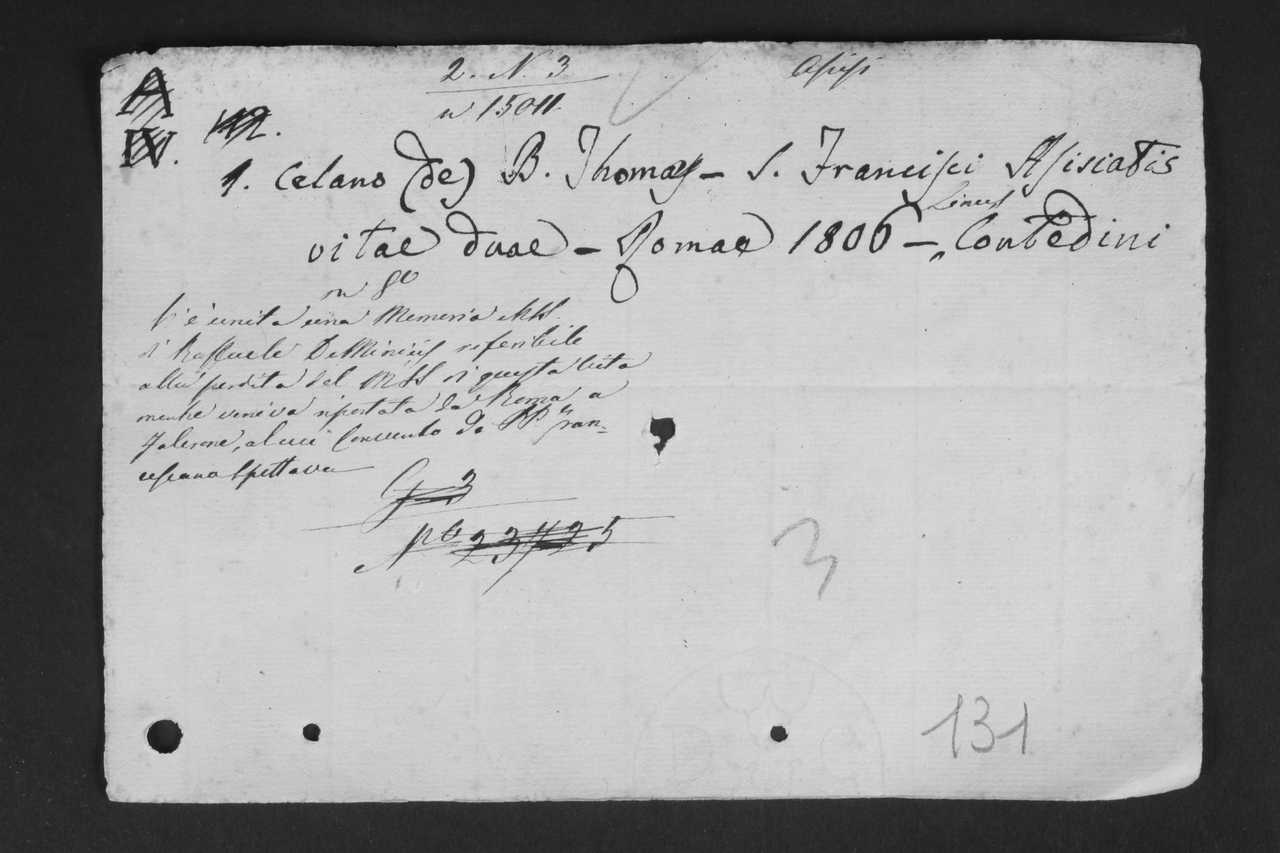 2. N. 3
Assisi
n 15011
A
IV.
142.
1. Celano (de) B. Thomas – S. Francisci Assisiatis
vitae duae – Romae 1806 – Linus Contedini
in 8º
V'è unita una Memoria MS.
di Raffaele De Minicis referibile
alla perdita del MSS di questa vita
mentre veniva riportata da Roma a
Falerone, al cui Convento de PP. Fran=
cescano spettava
G 3
Nº 23725
3
131